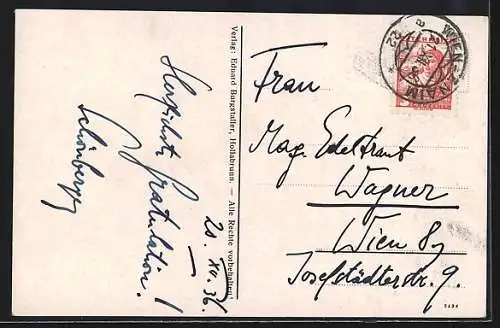 Herzlichste Gratulation!
Schönberger
20. XII. 36.
Verlag: Eduard Burgstaller, Hollabrunn. — Alle Rechte vorbehalten!
Frau
Mag. Edeltraut
Wagner
Wien 8
Josefstädterstr. 9.
WIEN